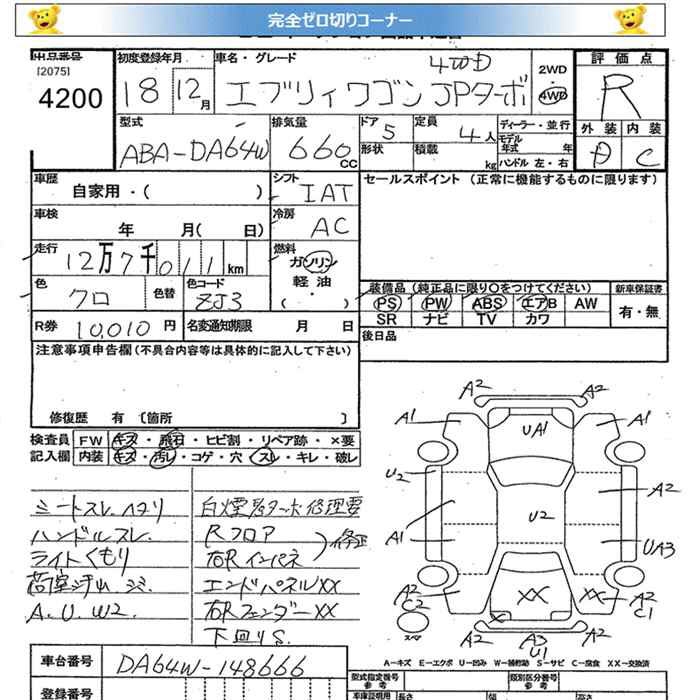 完全ゼロ切りコーナー
出品番号 初度登録年月 車名・グレード 評価点
[2075] 4WD 2WD
4200 18 12月 エブリィワゴン JPターボ 4WD R
型式 排気量 ドア 5 定員 4人 ディーラー・並行 外装 内装
モデル年式 年
ABA-DA64W 660cc 形状 積載 kg ハンドル 左・右 C
車歴 シフト セールスポイント (正常に機能するものに限ります)
自家用・( ) IAT
車検 冷房
年 月( 日) AC
走行 燃料
12万7千011km ガソリン
色 色替 色コード 軽油 装備品 (純正品に限り○をつけてください) 新車保証書
クロ ZJ3 (・) PS PW ABS エアB AW 有・無
SR ナビ TV カワ
R券 10,010円 名変通知期限 月 日 後日品
注意事項申告欄(不具合内容等は具体的に記入して下さい)
修復歴 有 〔箇所 〕
検査員 FW キズ・飛石・ヒビ割・リペア跡・×要
記入欄 内装 キズ・汚レ・コゲ・穴・スレ・キレ・破レ
シートスレ ヘタリ 白煙 ターボ修理要
ハンドルスレ Rフロア 修正
ライトくもり 右Rインパネ
荷室 エンドパネルXX
A.U.W2. 右Rフェンダー XX
下回りS.
A2 A2
A1 UA1 A1
U2 A2
A1 U2 UA3
A2 C2 XX XX A2 C1
スペア X A2 A3 U1 A2
A-キズ E-エクボ U-凹み W-補修跡 S-サビ C-腐食 XX-交換済
車台番号 DA64W-148666 型式指定番号 参考 類別区分番号 参考
登録番号 車庫証明用 参考 長さ 幅 高さ